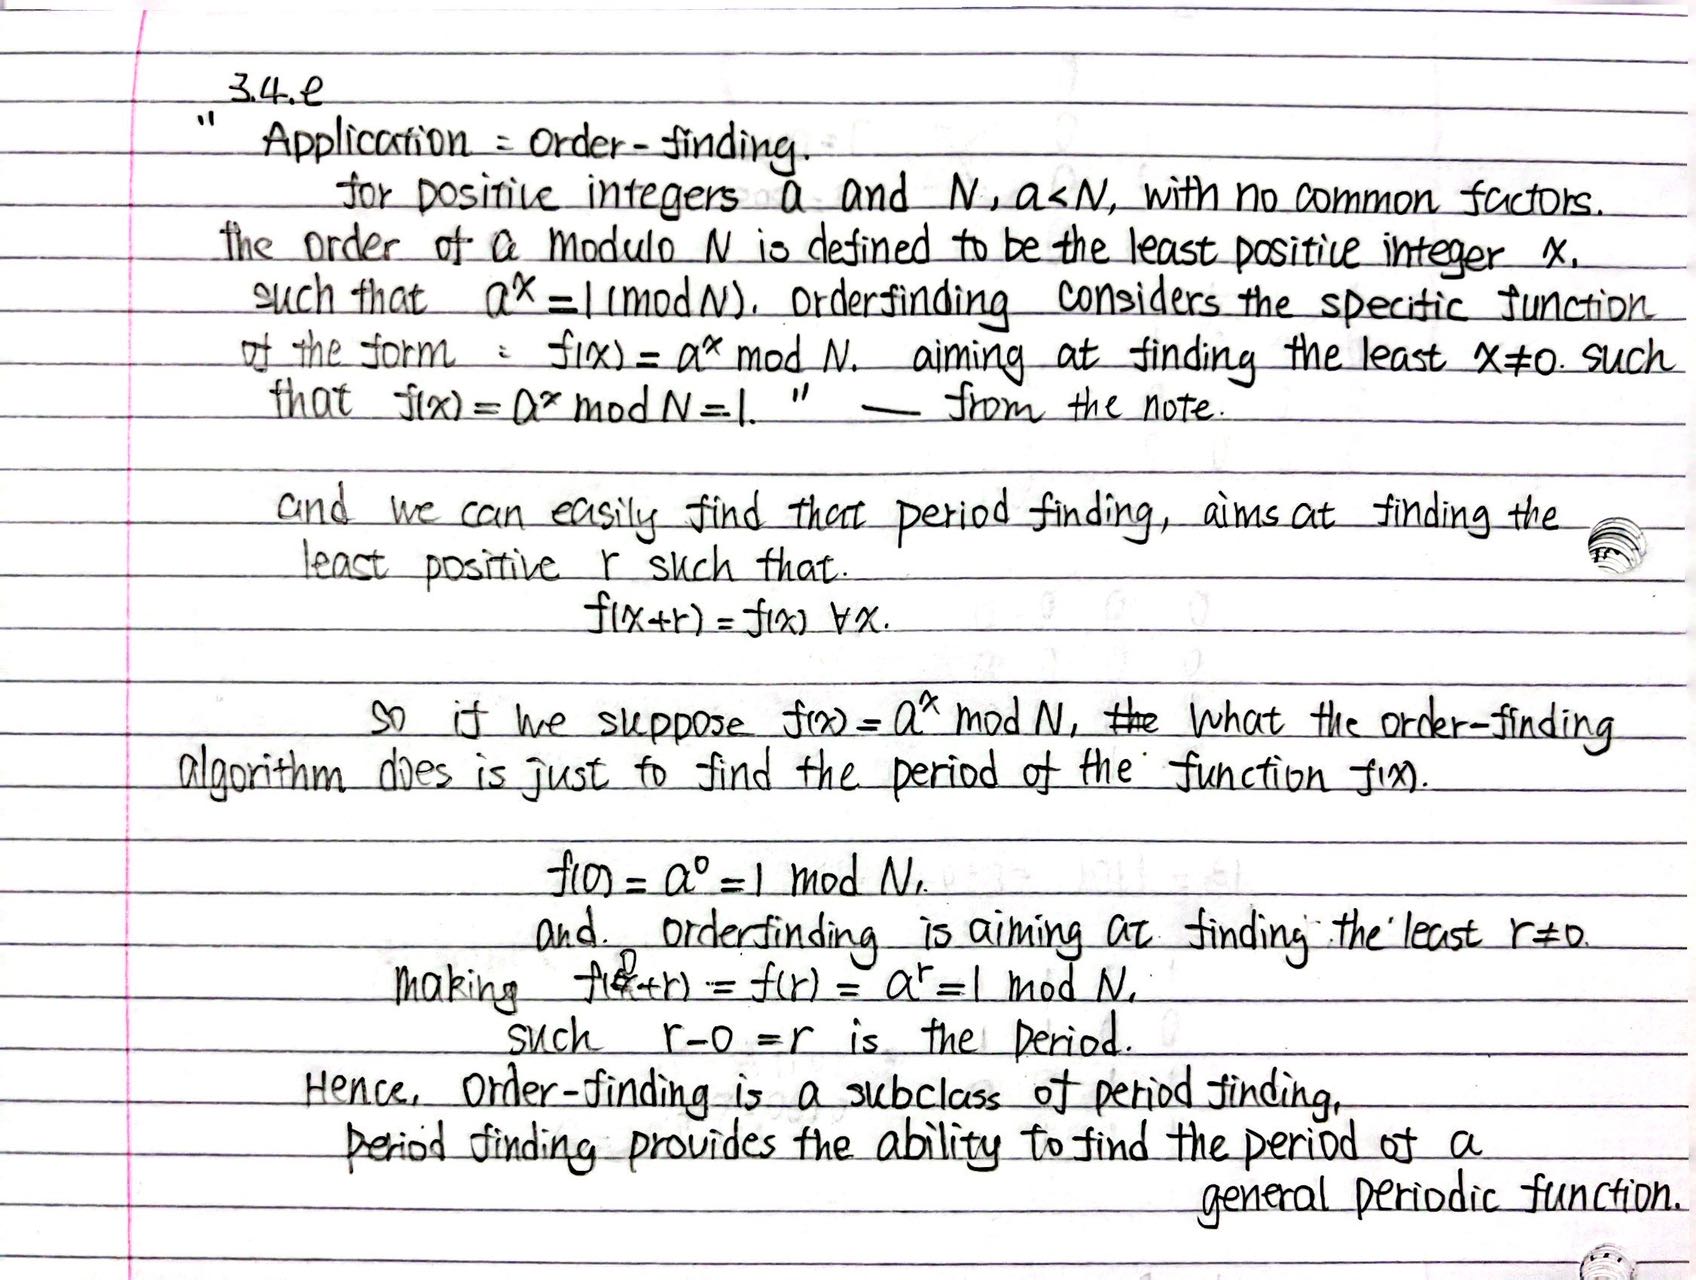 3.4.e
" Application : Order-finding.
for positive integers a and N, a<N, with no common factors.
the order of a modulo N is defined to be the least positive integer x,
such that a^x = 1 (mod N). Orderfinding considers the specific function
of the form : f(x) = a^x mod N. aiming at finding the least x≠0. such
that f(x) = a^x mod N = 1. " — from the note.
and we can easily find that period finding, aims at finding the
least positive r such that.
f(x+r) = f(x) ∀x.
So if we suppose f(x) = a^x mod N, the what the order-finding
algorithm does is just to find the period of the function f(x).
f(0) = a^0 = 1 mod N.
and. orderfinding is aiming at finding the least r≠0.
making f(0+r) = f(r) = a^r = 1 mod N.
such r-0 = r is the period.
Hence, Order-finding is a subclass of period finding,
period finding provides the ability to find the period of a
general periodic function.